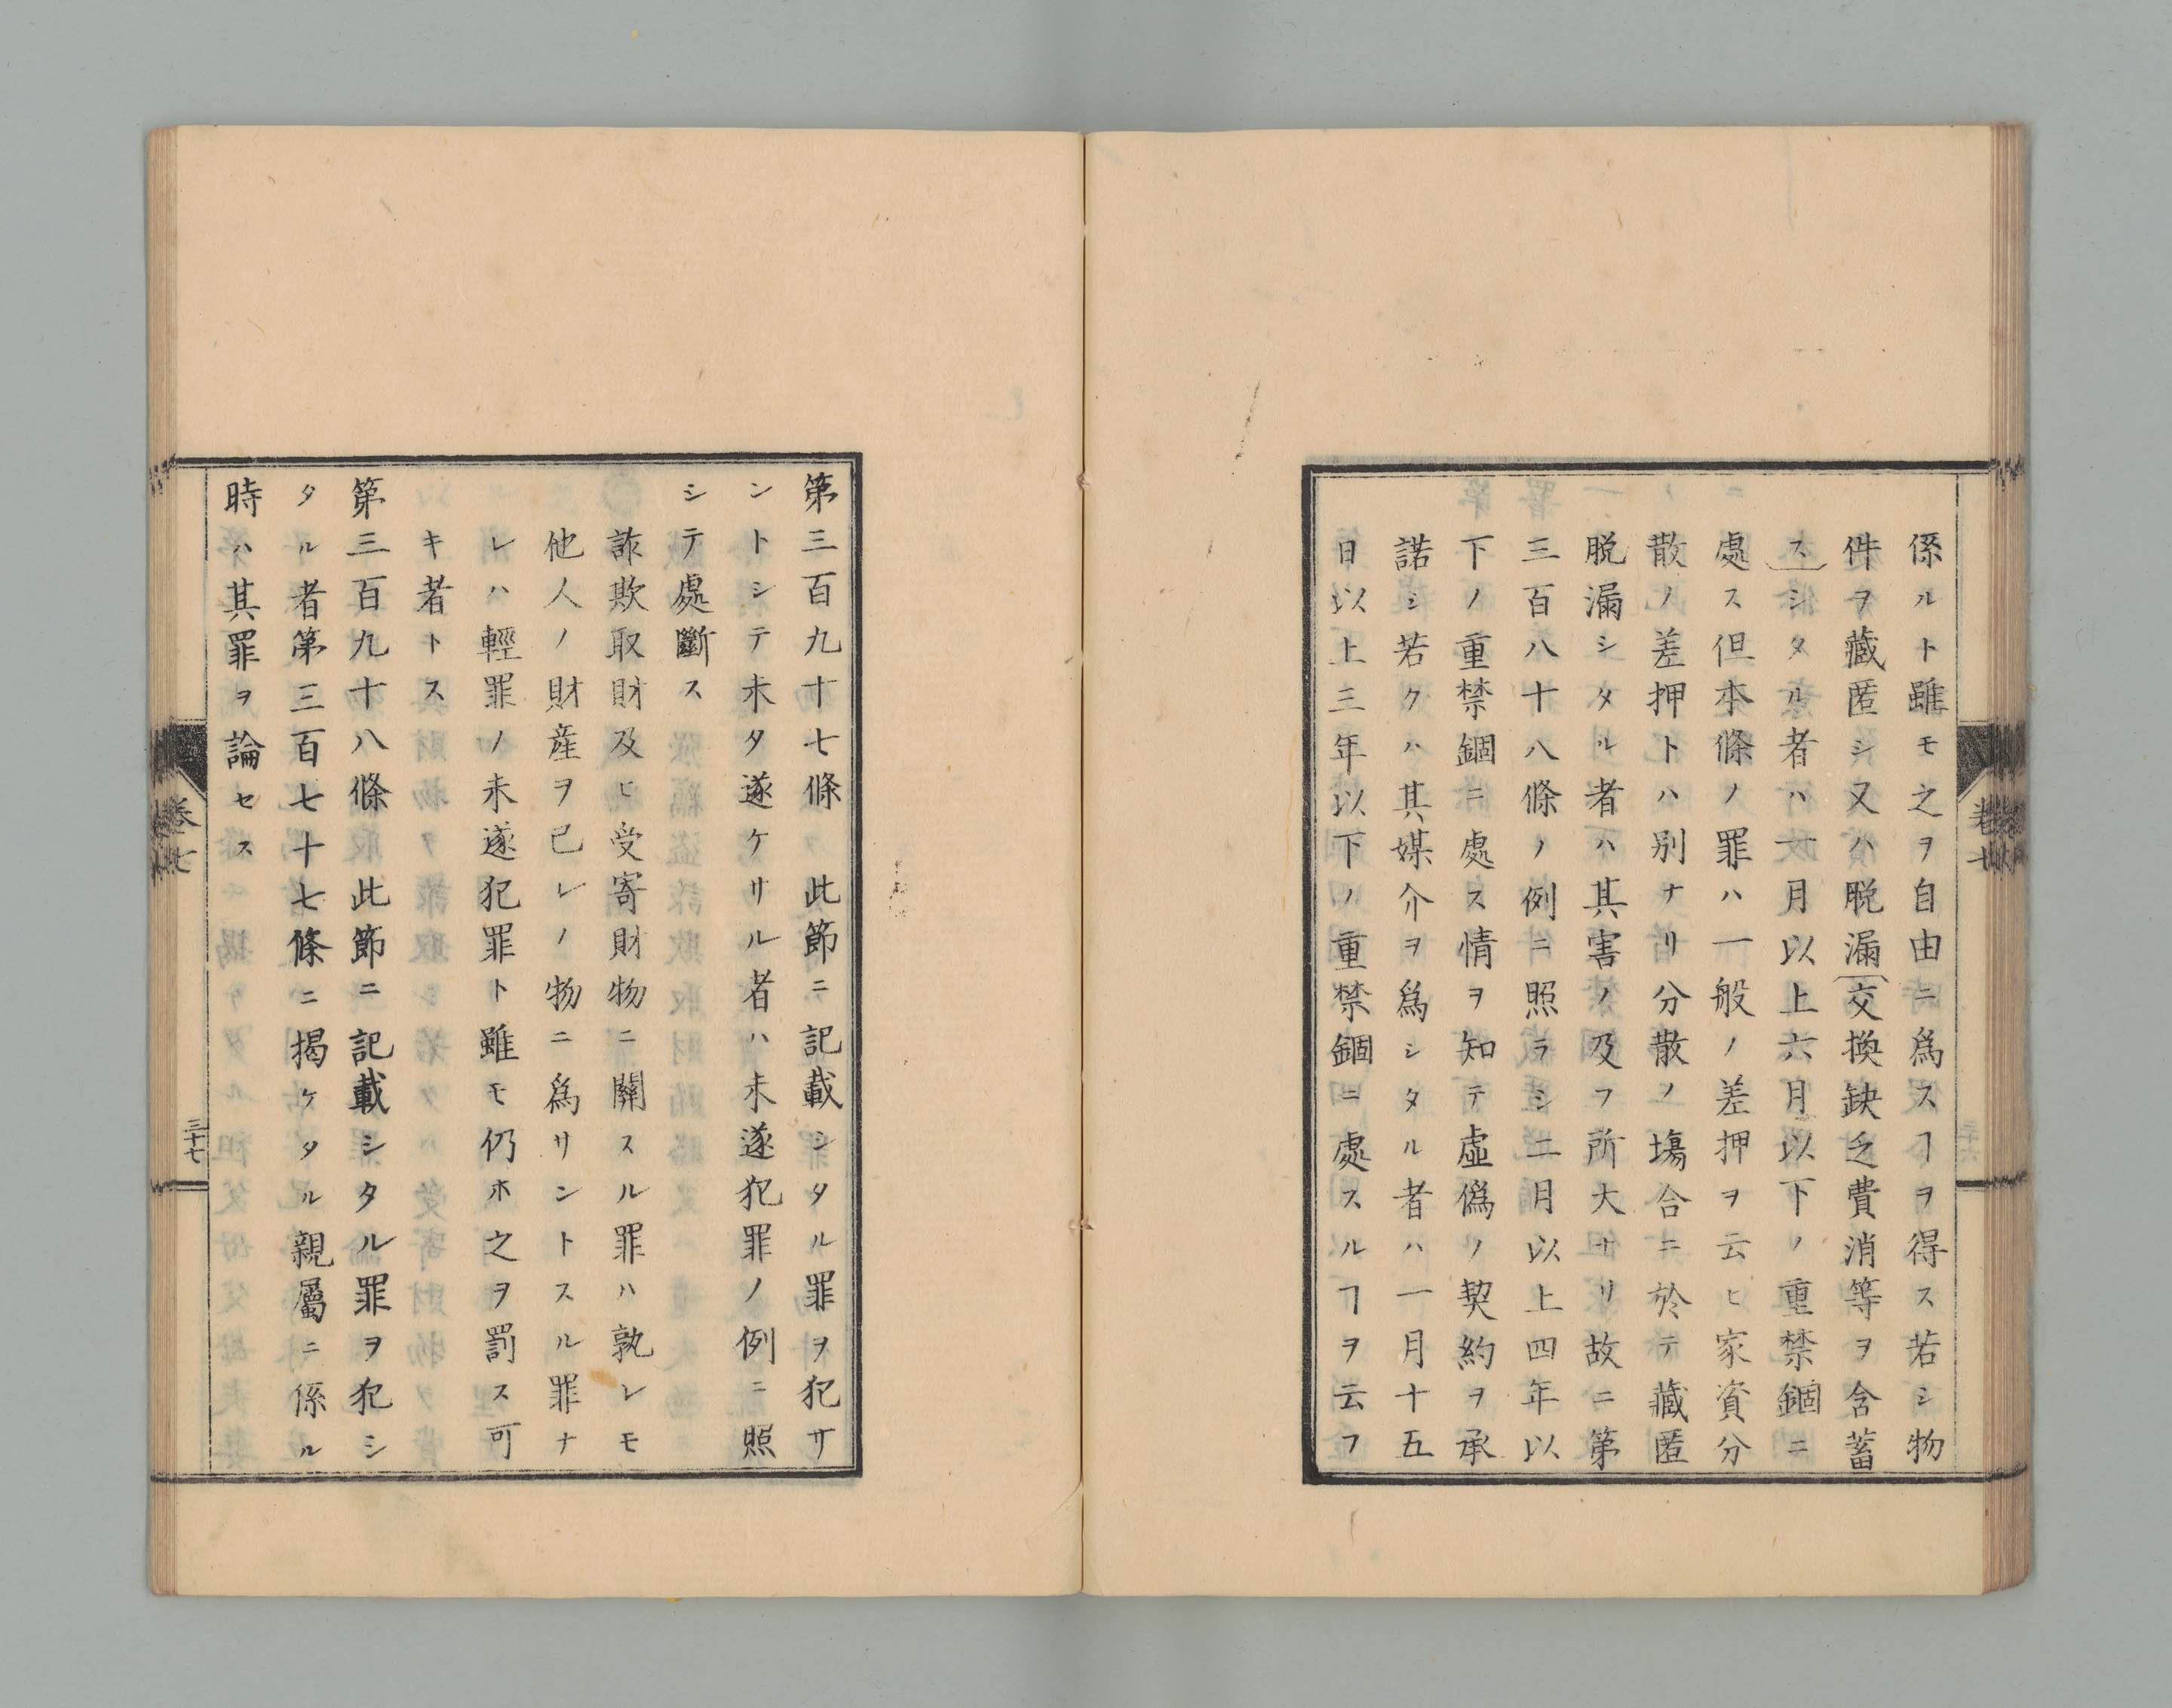 係ルト雖モ之ヲ自由ニ爲スヿヲ得ス若シ物
件ヲ藏匿シ又ハ脱漏(交換缺乏費消等ヲ含蓄
ス)シタル者ハ一月以上六月以下ノ重禁錮ニ
處ス但本條ノ罪ハ一般ノ差押ヲ云ヒ家資分
散ノ差押トハ別ナリ分散ノ塲合ニ於テ藏匿
脱漏シタル者ハ其害ノ及フ所大ナリ故ニ第
三百八十八條ノ例ニ照ラシ二月以上四年以
下ノ重禁錮ニ處ス情ヲ知テ虛僞ノ契約ヲ承
諾シ若クハ其媒介ヲ爲シタル者ハ一月十五
日以上三年以下ノ重禁錮ニ處スルヿヲ云フ
卷七
第三百九十七條 此節ニ記載シタル罪ヲ犯サ
ントシテ未タ遂ケサル者ハ未遂犯罪ノ例ニ照
シテ處斷ス
詐欺取財及ヒ受寄財物ニ關スル罪ハ孰レモ
他人ノ財産ヲ己レノ物ニ爲サントスル罪ナ
レハ輕罪ノ未遂犯罪ト雖モ仍ホ之ヲ罰ス可
キ者トス
第三百九十八條 此節ニ記載シタル罪ヲ犯シ
タル者第三百七十七條ニ揭ケタル親屬ニ係ル
時ハ其罪ヲ論セス
卷七
三十七